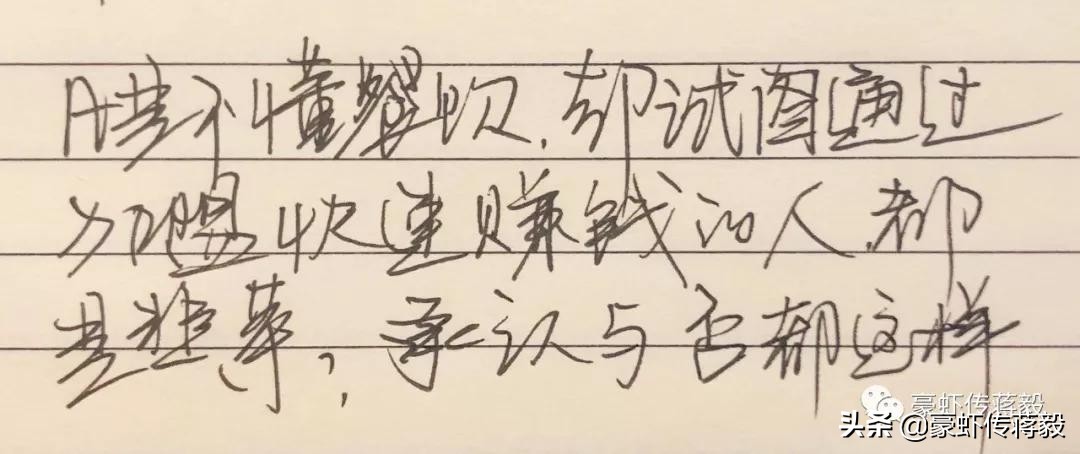 但凡不懂餐饮，却试图通过
加盟快速赚钱的人，都
是韭菜，承认与否都这样
豪虾传蒋毅
头条 @豪虾传蒋毅